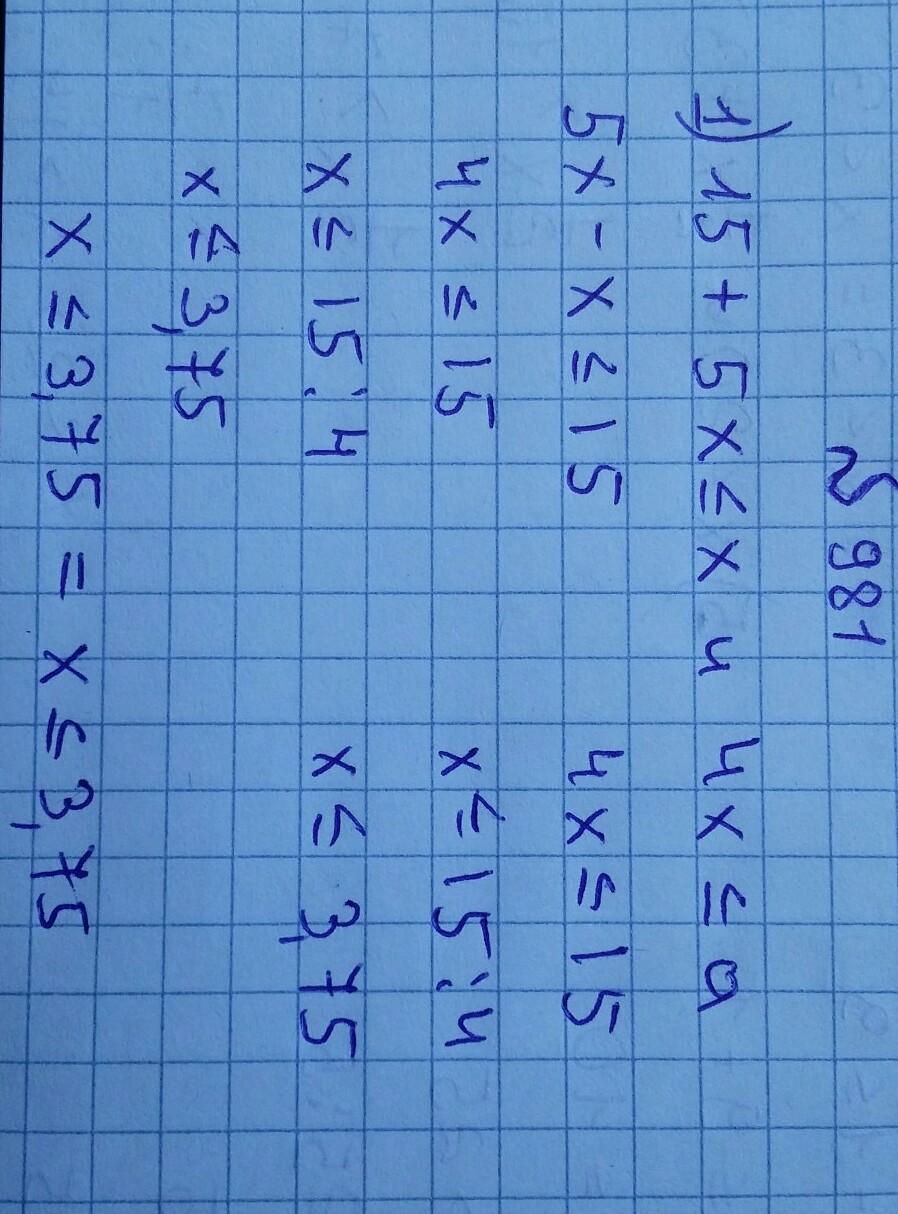 № 981
1) 15 + 5x ≤ x и 4x ≤ a
5x - x ≤ 15 4x ≤ 15
4x ≤ 15 x ≤ 15:4
x ≤ 15:4 x ≤ 3,75
x ≤ 3,75
x ≤ 3,75 = x ≤ 3,75